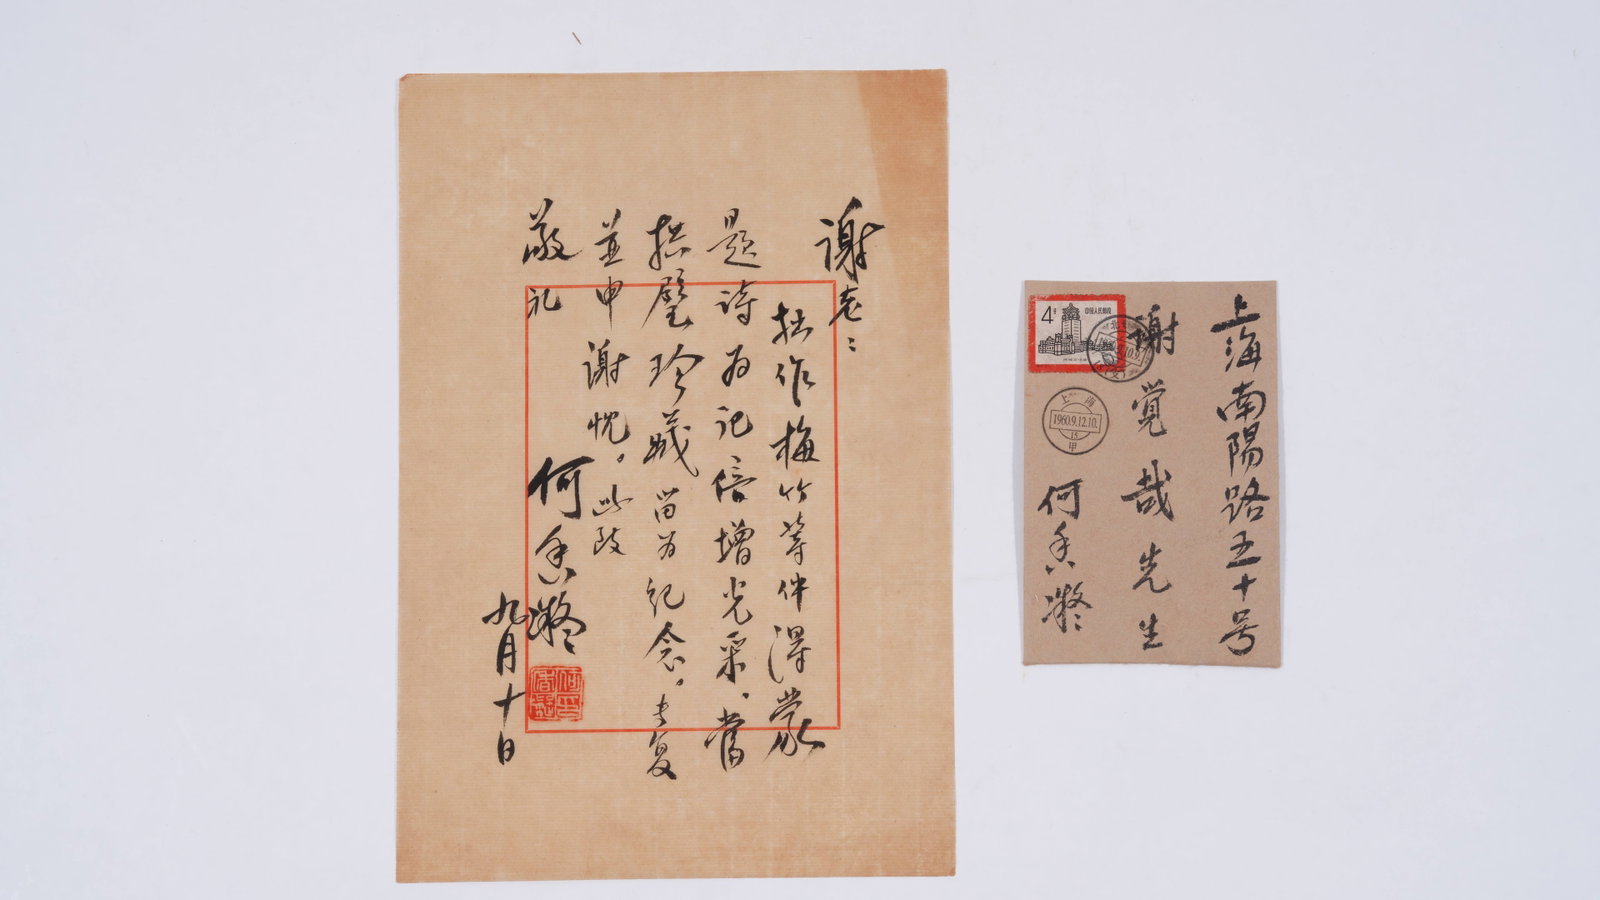 谢老：
拙作梅竹等件得蒙
题诗为记倍增光采，当
拱璧珍藏留为纪念。专复
並申谢忱。此致
敬礼
何香凝
九月十日
上海南陽路五十号
谢觉哉先生
何香凝
4分
中国人民邮政
上海
1960.9.12.10.
15
甲